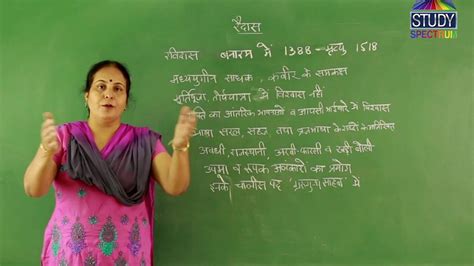 STUDY
SPECTRUM
रैदास
रविदास बनारस में 1388 – मृत्यु 1518
मध्ययुगीन साधक, कबीर के समकक्ष
मूर्तिपूजा, तीर्थयात्रा में विश्वास नहीं
का आंतरिक भावनाओं व आपसी भाईचारे में विश्वास
भाषा सरल, सहज, तथा ब्रजभाषा के शब्दों से मिश्रित
अवधी, राजस्थानी, अरबी-फारसी व खड़ी बोली
उपमा व रूपक अलंकारों का प्रयोग
इनके चालीस पद 'गुरुग्रन्थ साहब' में